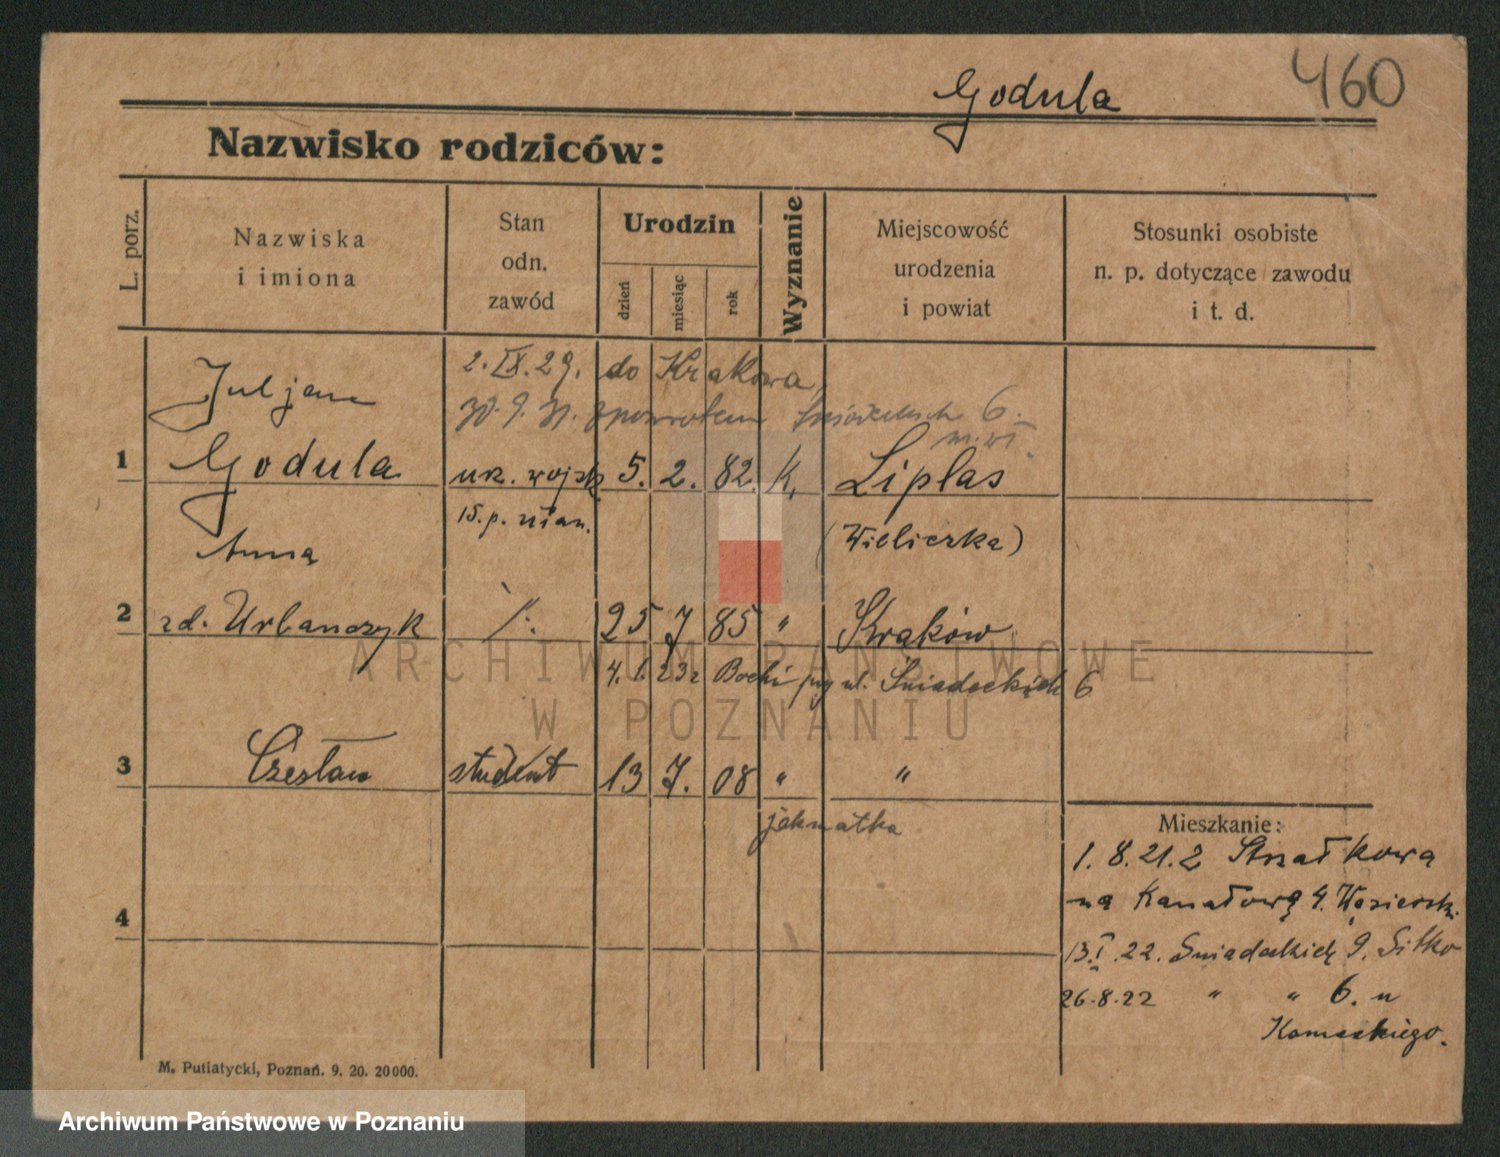 460
Godula
Nazwisko rodziców:
L. porz.
Nazwiska
i imiona
Stan
odn.
zawód
Urodzin
dzień
miesiąc
rok
Wyznanie
Miejscowość
urodzenia
i powiat
Stosunki osobiste
n. p. dotyczące zawodu
i t. d.
2. IX. 29. do Krakowa
zpowrotem Śniadeckich 6.
m. VI.
1 Juljan
Godula urz. wojsk 5. 2. 82. k. Liplas
15. p. ułan. (Wieliczka)
Anna
2 zd. Urbanczyk ./. 25 7 85 " Kraków
4. 1. 23 z ul. Śniadeckich 6
3 Czesław student 13 7. 08 " "
jak matka
4
Mieszkanie:
1. 8. 21. z Strzałkowa
na Kanałową 4. Węsierski.
13. I. 22. Śniadeckich 9. Sitko
26. 8. 22 " " 6. u
M. Putiatycki, Poznań. 9. 20. 20000.
ARCHIWUM PAŃSTWOWE
W POZNANIU
Archiwum Państwowe w Poznaniu